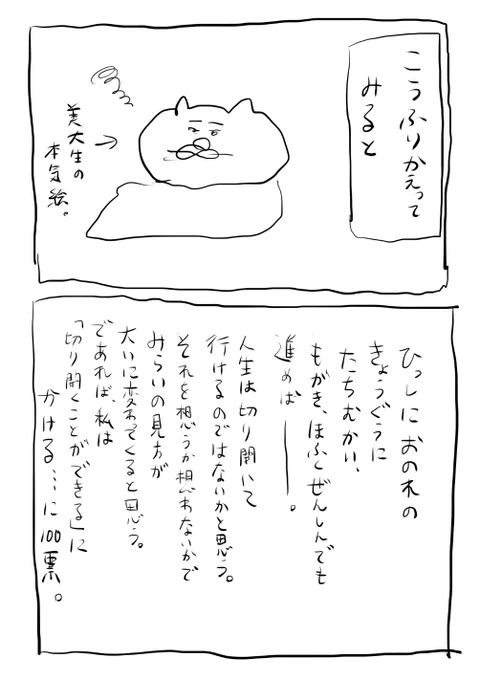 こうふりかえって
みると
美大生の
本気絵。
ひっしに おのれの
きょうぐうに
たちむかい、
もがき、ほふくぜんしんでも
進めば――。
人生は切り開いて
行けるのではないかと思う。
それを想うか想わないかで
みらいの見方が
大いに変わってくると思う。
であれば、私は
「切り開くことができる」に
かける……に100票。